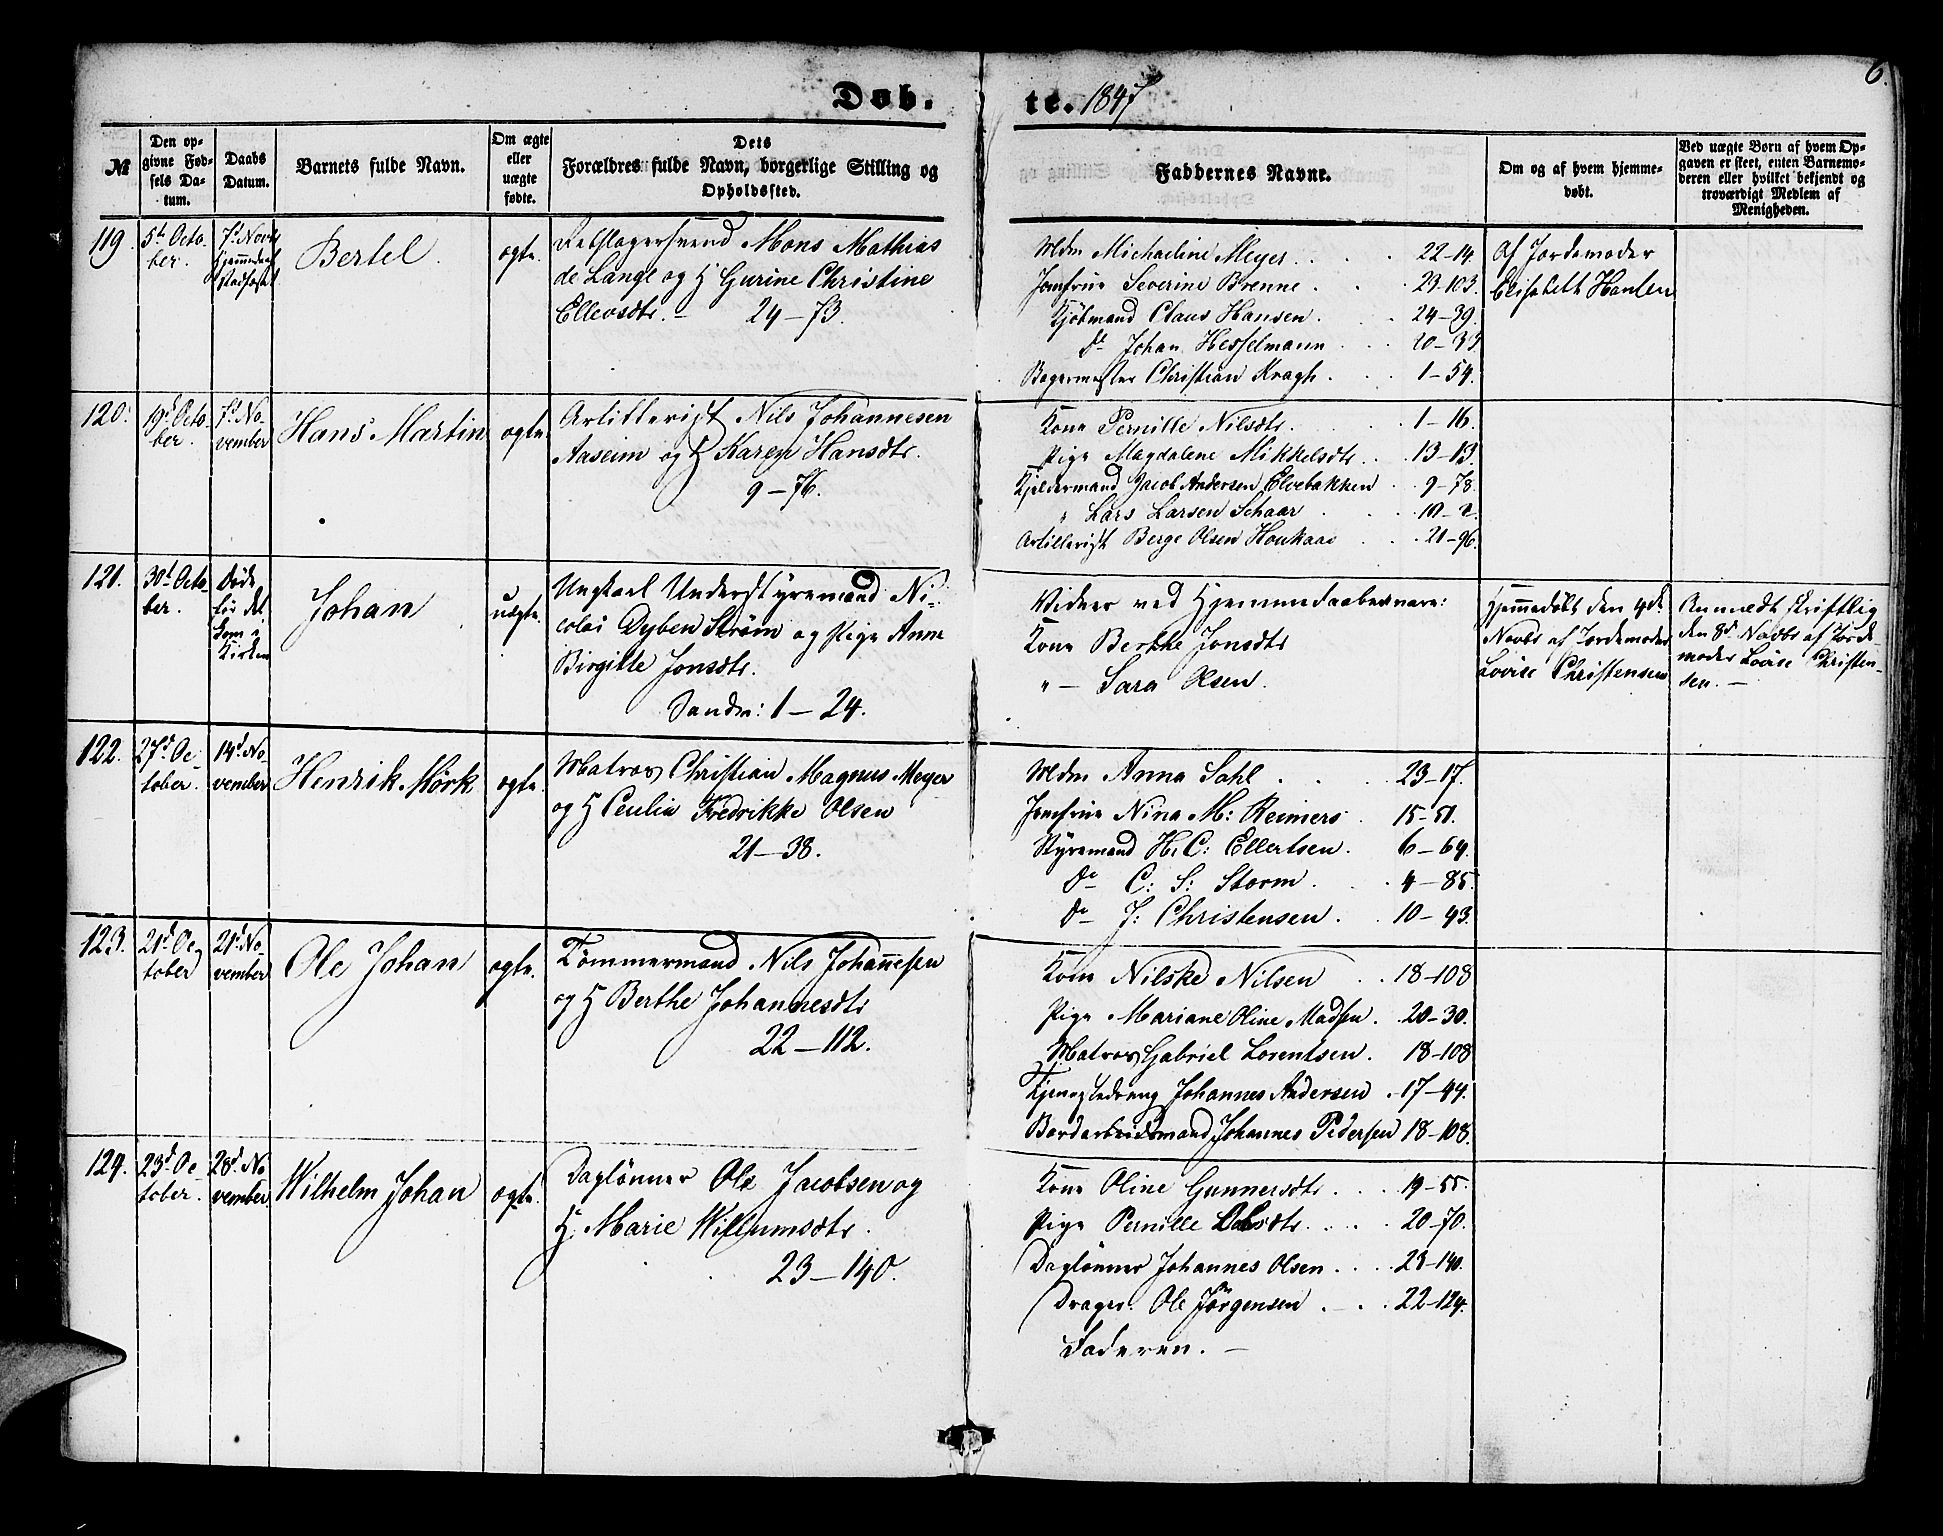 6.
Døb. te. 1847
№
Den op-
givne Fød-
sels Da-
tum.
Daabs
Datum.
Barnets fulde Navn.
Om ægte
eller
uægte
fødte.
Dets
Forældres fulde Navn, borgerlige Stilling og
Opholdssted.
Faddernes Navne.
Om og af hvem hjemme-
døbt.
Ved uægte Børn af hvem Op-
gaven er skeet, enten Barnemo-
deren eller hvilket bekjendt og
troværdigt Medlem af
Menigheden.
119.
5t Octo-
ber.
7d Novb
Bertel.
ægte.
Rebslagersvend Mons Mathias
de Lange og H Gurine Christine
Ellevsdtr. – 24–73.
Mdm Michaeline Meyer . . . . 22–14.
Jomfrue Severine Brenne . . . 23–103.
Kjøbmand Claus Hansen . . . 24–39.
Do Johan Hesselmann . . .
Bagermester Christian Kragh . . 1–54.
Af Jordemoder
Elisabeth Hanlen
120.
19d Octo-
ber.
7d No-
vember
Hans Martin
ægte
Artillerist Nils Johannesen
Aaseim og H Karen Hansdtr.
9–76.
Kone Pernille Nilsdtr. . . . 1–16.
Pige Magdalene Mikkelsdtr. . . 13–13
Kjeldermand Jacob Andersen Elvebakken . . 9–78.
" Lars Larsen Schaar . . .
Artillerist Berge Olsen Houkaas . . 21–96.
121.
30d Octo-
ber.
Døde
før det
kom i
Kirken
Johan
uægte.
Ungkarl Understyrmand Ni-
colai Dyben Strøm og Pige Anne
Birgitte Jonsdtr.
Sandv: 1–24.
Vidner ved Hjemmedaaben vare:
Kone Berthe Jonsdtr
" – Sara Olsen.
Hjemmedøbt den 4de
Novbr af Jordemoder
Lovise Christensen
Anmeldt skriftlig
den 8d Novbr af Jorde-
moder Lovise Christen-
sen. –
122.
27d Oc-
tober.
14d No-
vember
Henrik Mørk
ægte.
Matros Christian Magnus Meyer
og H Cecilia Fredrikke Olsen
21–38.
Mdm Anna Dahl . . . . 23–17.
Jomfrue Nina M: Reimers . 15–51.
Styrmand H. C: Ellertsen . 6–64.
Do C: S: Storm . . . 4–85.
Do J: Christensen . . 10–93.
123.
21d Oc-
tober
21d No-
vember
Ole Johan
ægte.
Tømmermand Nils Johannesen
og H Berthe Johannesdtr
22–112.
Kone Nilske Nilsen . . 18–108
Pige Mariane Oline Madsen . . 20–30.
Matros Gabriel Lorentsen . 18–108
Tjenestedreng Johannes Andersen . 17–44.
Bordarbeidsmand Johannes Pedersen 18–108.
124.
23d Oc-
tober.
28d No-
vember
Wilhelm Johan
ægte.
Daglønner Ole Jacobsen og
H. Marie Willumsdtr.
23–140.
Kone Oline Gunnersdtr . . . 19–55.
Pige Pernille Olsdtr . . . . 20–70.
Daglønner Johannes Olsen . . . 23–140.
Drager. Ole Jørgensen . . . 22–124.
Faderen. –